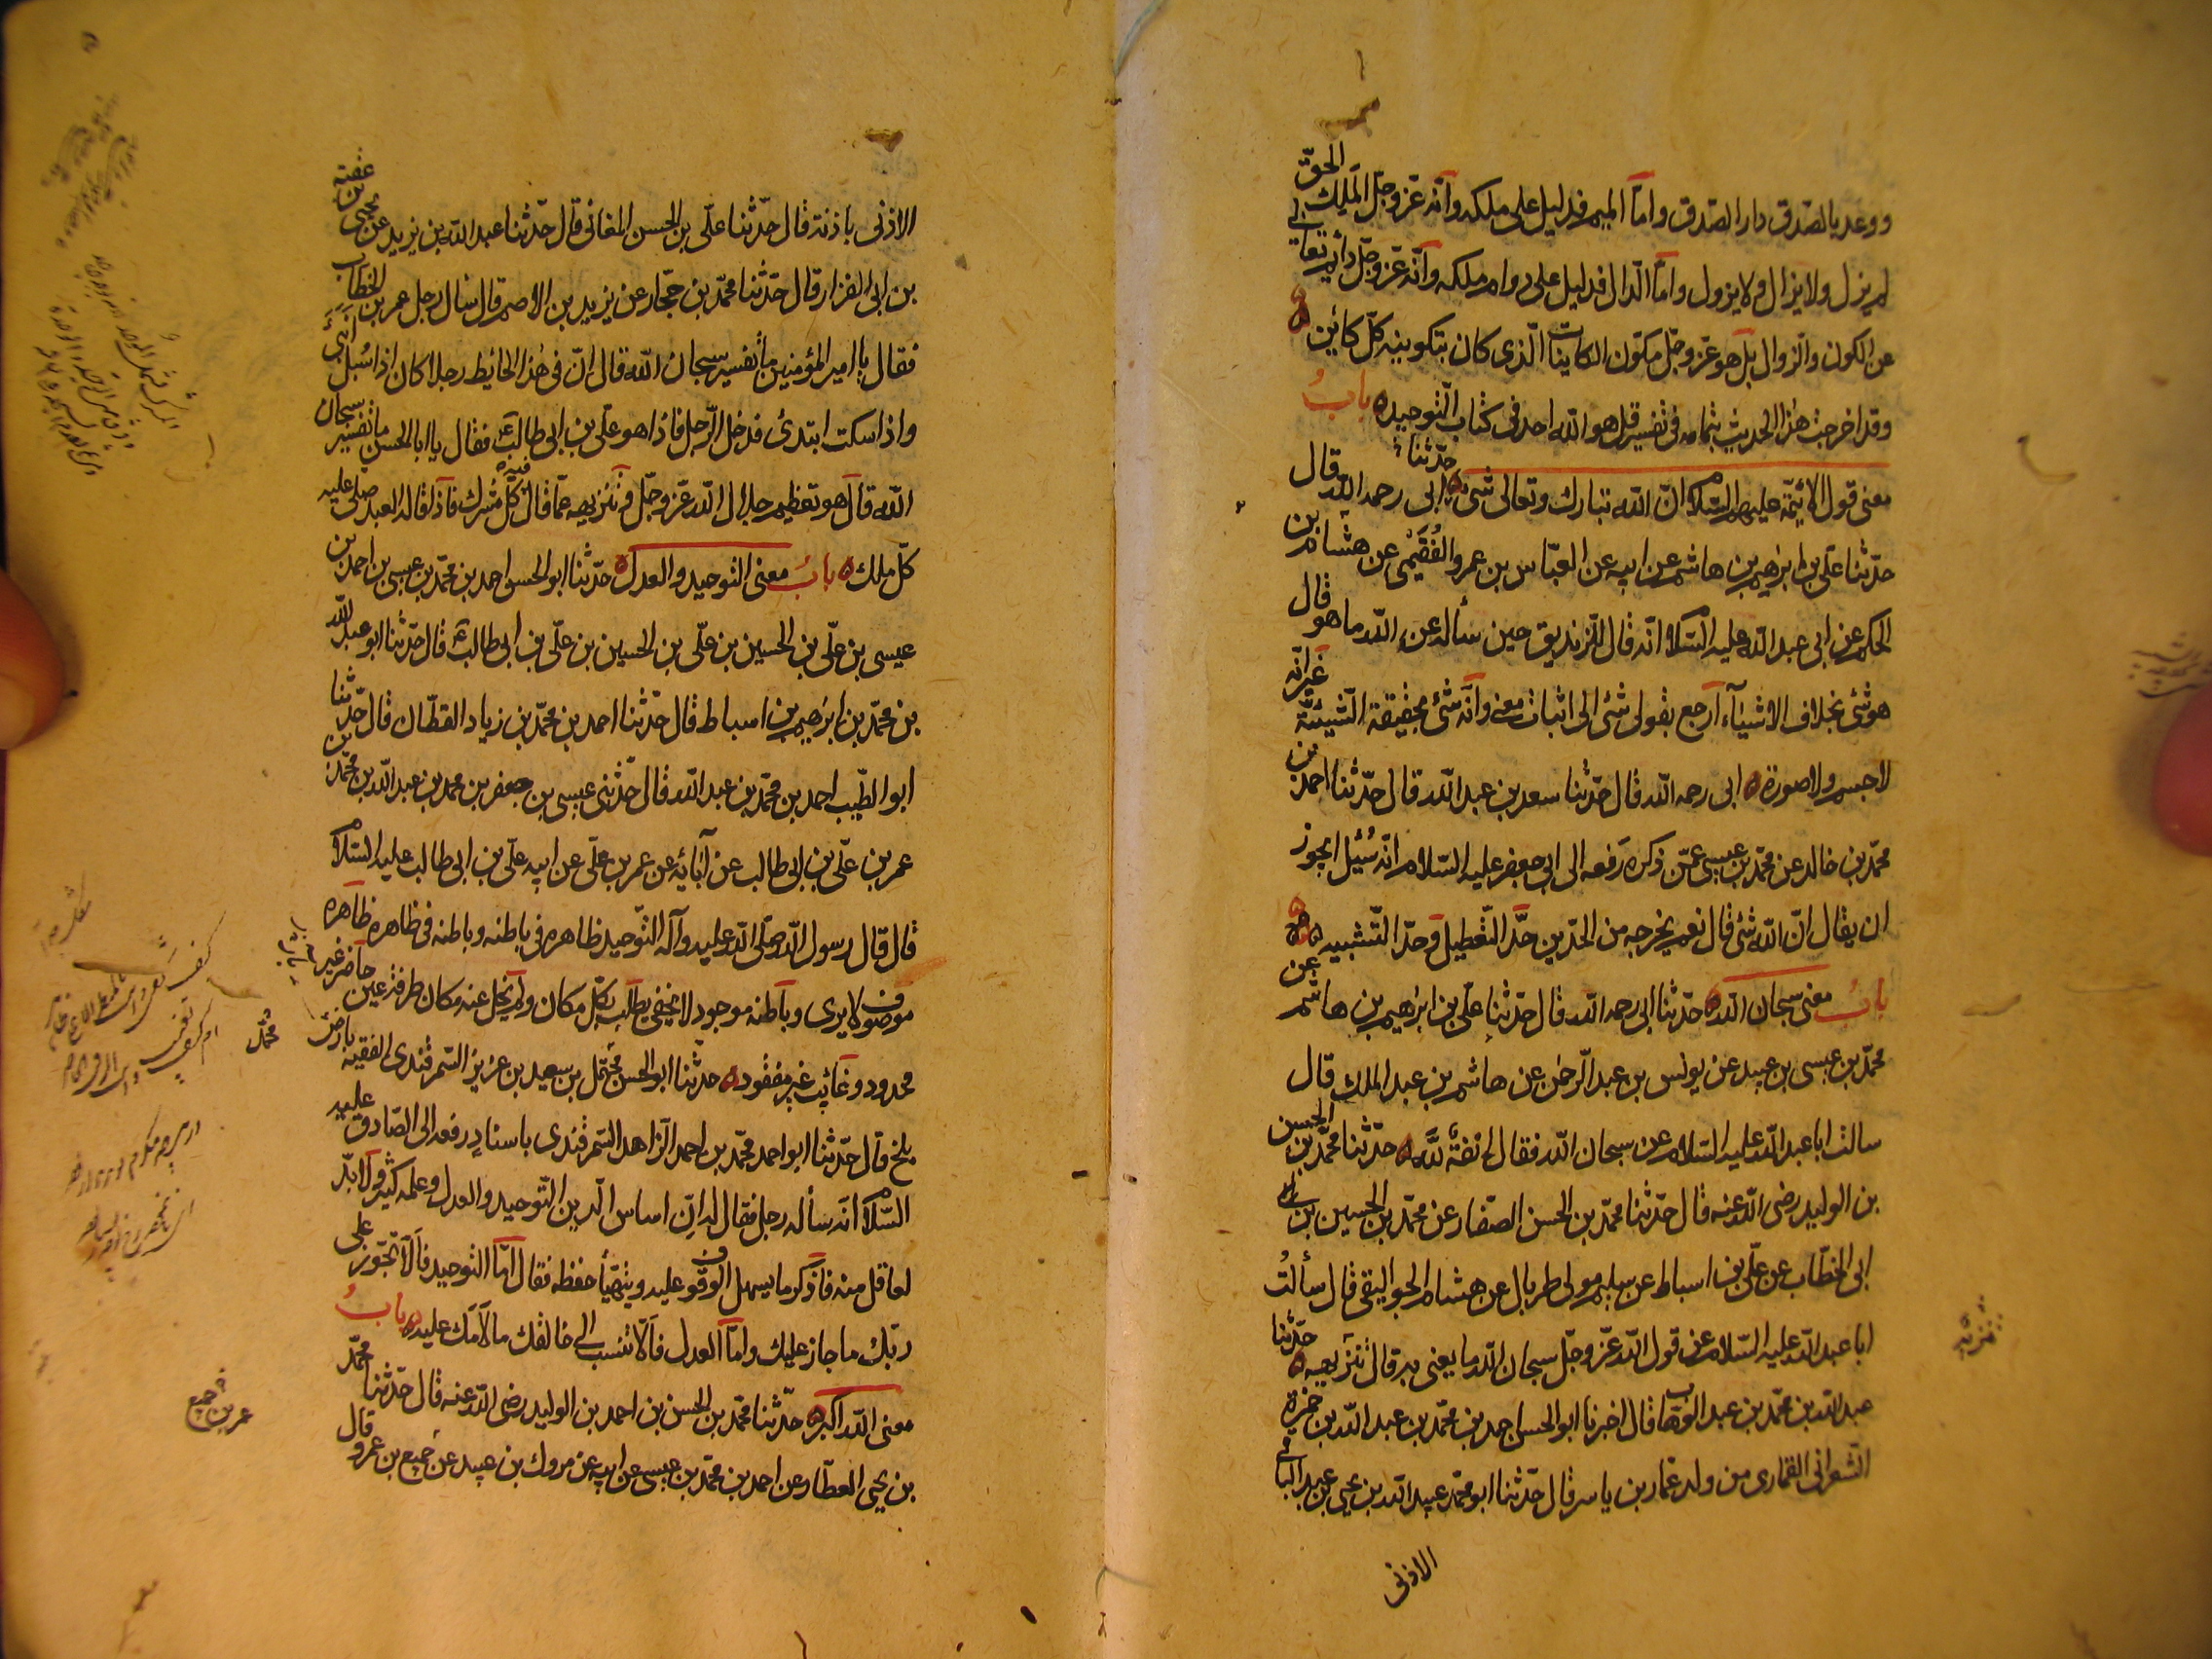 ووعد بالصدق دار الصدق واما الميم فدليل على ملكه وانه عز وجل الملك الحق
لم يزل ولا يزال ولا يزول واما الدال فدليل على دوام ملكه وانه عز وجل دائم تعالى
عن الكون والزوال بل هو عز وجل مكون الكاينات الذى كان بتكوينه كل كائن ه
وقد اخرجت هذا الحديث بتمامه فى تفسير قل هو الله احد فى كتاب التوحيد ه باب
معنى قول الائمة عليهم السلام ان الله تبارك وتعالى شىء ه ابى رحمه الله قال حدثنا
حدثنا على بن ابرهيم بن هاشم عن ابيه عن العباس بن عمرو الفقيمى عن هشام بن
الحكم عن ابى عبد الله عليه السلام انه قال للزنديق حين سأله عن الله ما هو قال
هو شئ بخلاف الاشياء ارجع بقولى شئ الى اثبات معنى وانه شئ بحقيقة الشيئية غير انه
لا جسم ولا صورة ه ابى رحمه الله قال حدثنا سعد بن عبد الله قال حدثنا احمد بن
محمد بن خالد عن محمد بن عيسى عمن ذكره رفعه الى ابى جعفر عليه السلام انه سئيل ايجوز
ان يقال ان الله شئ قال نعم يخرجه من الحدين حد التعطيل وحد التشبيه ه
باب معنى سبحان الله ه حدثنا ابى رحمه الله قال حدثنا على بن ابرهيم بن هاشم عن
محمد بن عيسى بن عبيد عن يونس بن عبد الرحمن عن هاشم بن عبد الملك قال
سالت ابا عبد الله عليه السلام عن سبحان الله فقال انفة لله ه حدثنا محمد بن الحسن
بن الوليد رضى الله عنه قال حدثنا محمد بن الحسن الصفار عن محمد بن الحسين بن
ابى الخطاب عن على بن اسباط عن سليم مولى طربال عن هشام الجواليقى قال سألت
ابا عبد الله عليه السلام عن قول الله عز وجل سبحان الله ما يعنى به قال تنزيهه ه حدثنا
عبد الله بن محمد بن عبد الوهاب قال اخبرنا ابو الحسن احمد بن محمد بن عبد الله بن حمزة
الشعرانى القمارى من ولد عمار بن ياسر قال حدثنا ابو محمد عبيد الله بن يحيى عن عبد الباقى
الاذنى
تنزيه
الاذنى باذنة قال حدثنا على بن الحسن المعانى قال حدثنا عبد الله بن يزيد عن يحيى بن عقبه
بن ابى الفزار قال حدثنا محمد بن حجار عن يزيد بن الاصم قال سال رجل عمر بن الخطاب
فقال يا امير المؤمنين ما تفسير سبحان الله قال ان فى هذا الحائيط رجلا كان اذا سئل انبئ
واذا سكت ابتدئ فدخل الرجل فاذا هو على بن ابى طالب فقال يا ابا الحسن ما تفسير سبحان
الله قال هو تعظيم جلال الله عز وجل وتنزيهه عما قال فيه كل مشرك فاذا قاله العبد صلى عليه
كل ملك ه باب معنى التوحيد والعدل ه حدثنا ابو الحسن احمد بن محمد بن عيسى بن احمد بن
عيسى بن على بن الحسين بن على بن الحسين بن على بن ابى طالب قال حدثنا ابو عبد الله
بن محمد بن ابرهيم بن اسباط قال حدثنا احمد بن محمد بن زياد القطان قال حدثنا
ابو الطيب احمد بن محمد بن عبد الله قال حدثنى عيسى بن جعفر بن محمد بن عبد الله بن محمد بن
عمر بن على بن ابى طالب عن آبائه عن عمر بن على عن ابيه على بن ابى طالب عليه السلام
قال قال رسول الله صلى الله عليه وآله التوحيد ظاهره فى باطنه وباطنه فى ظاهره ظاهره
موصوف لا يرى وباطنه موجود لا يخفى يطلب بكل مكان ولم يخل عنه مكان طرفة عين حاضر غير
محدود وغائب غير مفقود ه حدثنا ابو الحسن محمد بن سعيد بن عزيز السمرقندى الفقيه بارض
بلخ قال حدثنا ابو احمد محمد بن احمد الزاهد السمرقندى باسناد رفعه الى الصادق عليه
السلام انه سأله رجل فقال له ان اساس الدين التوحيد والعدل وعلمه كثير ولا بد
لعاقل منه فاذكر ما يسهل الوقوف عليه ويتهيأ حفظه فقال اما التوحيد فالا تجوز على
ربك ما جاز عليك واما العدل فالا تنسب الى خالقك ما لامك عليه ه باب
معنى الله اكبر ه حدثنا محمد بن الحسن بن احمد بن الوليد رضى الله عنه قال حدثنا محمد
بن يحيى العطار عن احمد بن محمد بن عيسى عن ابيه عن مروك بن عبيد عن جميع بن عمرو قال
محمد
عمر بن جميع